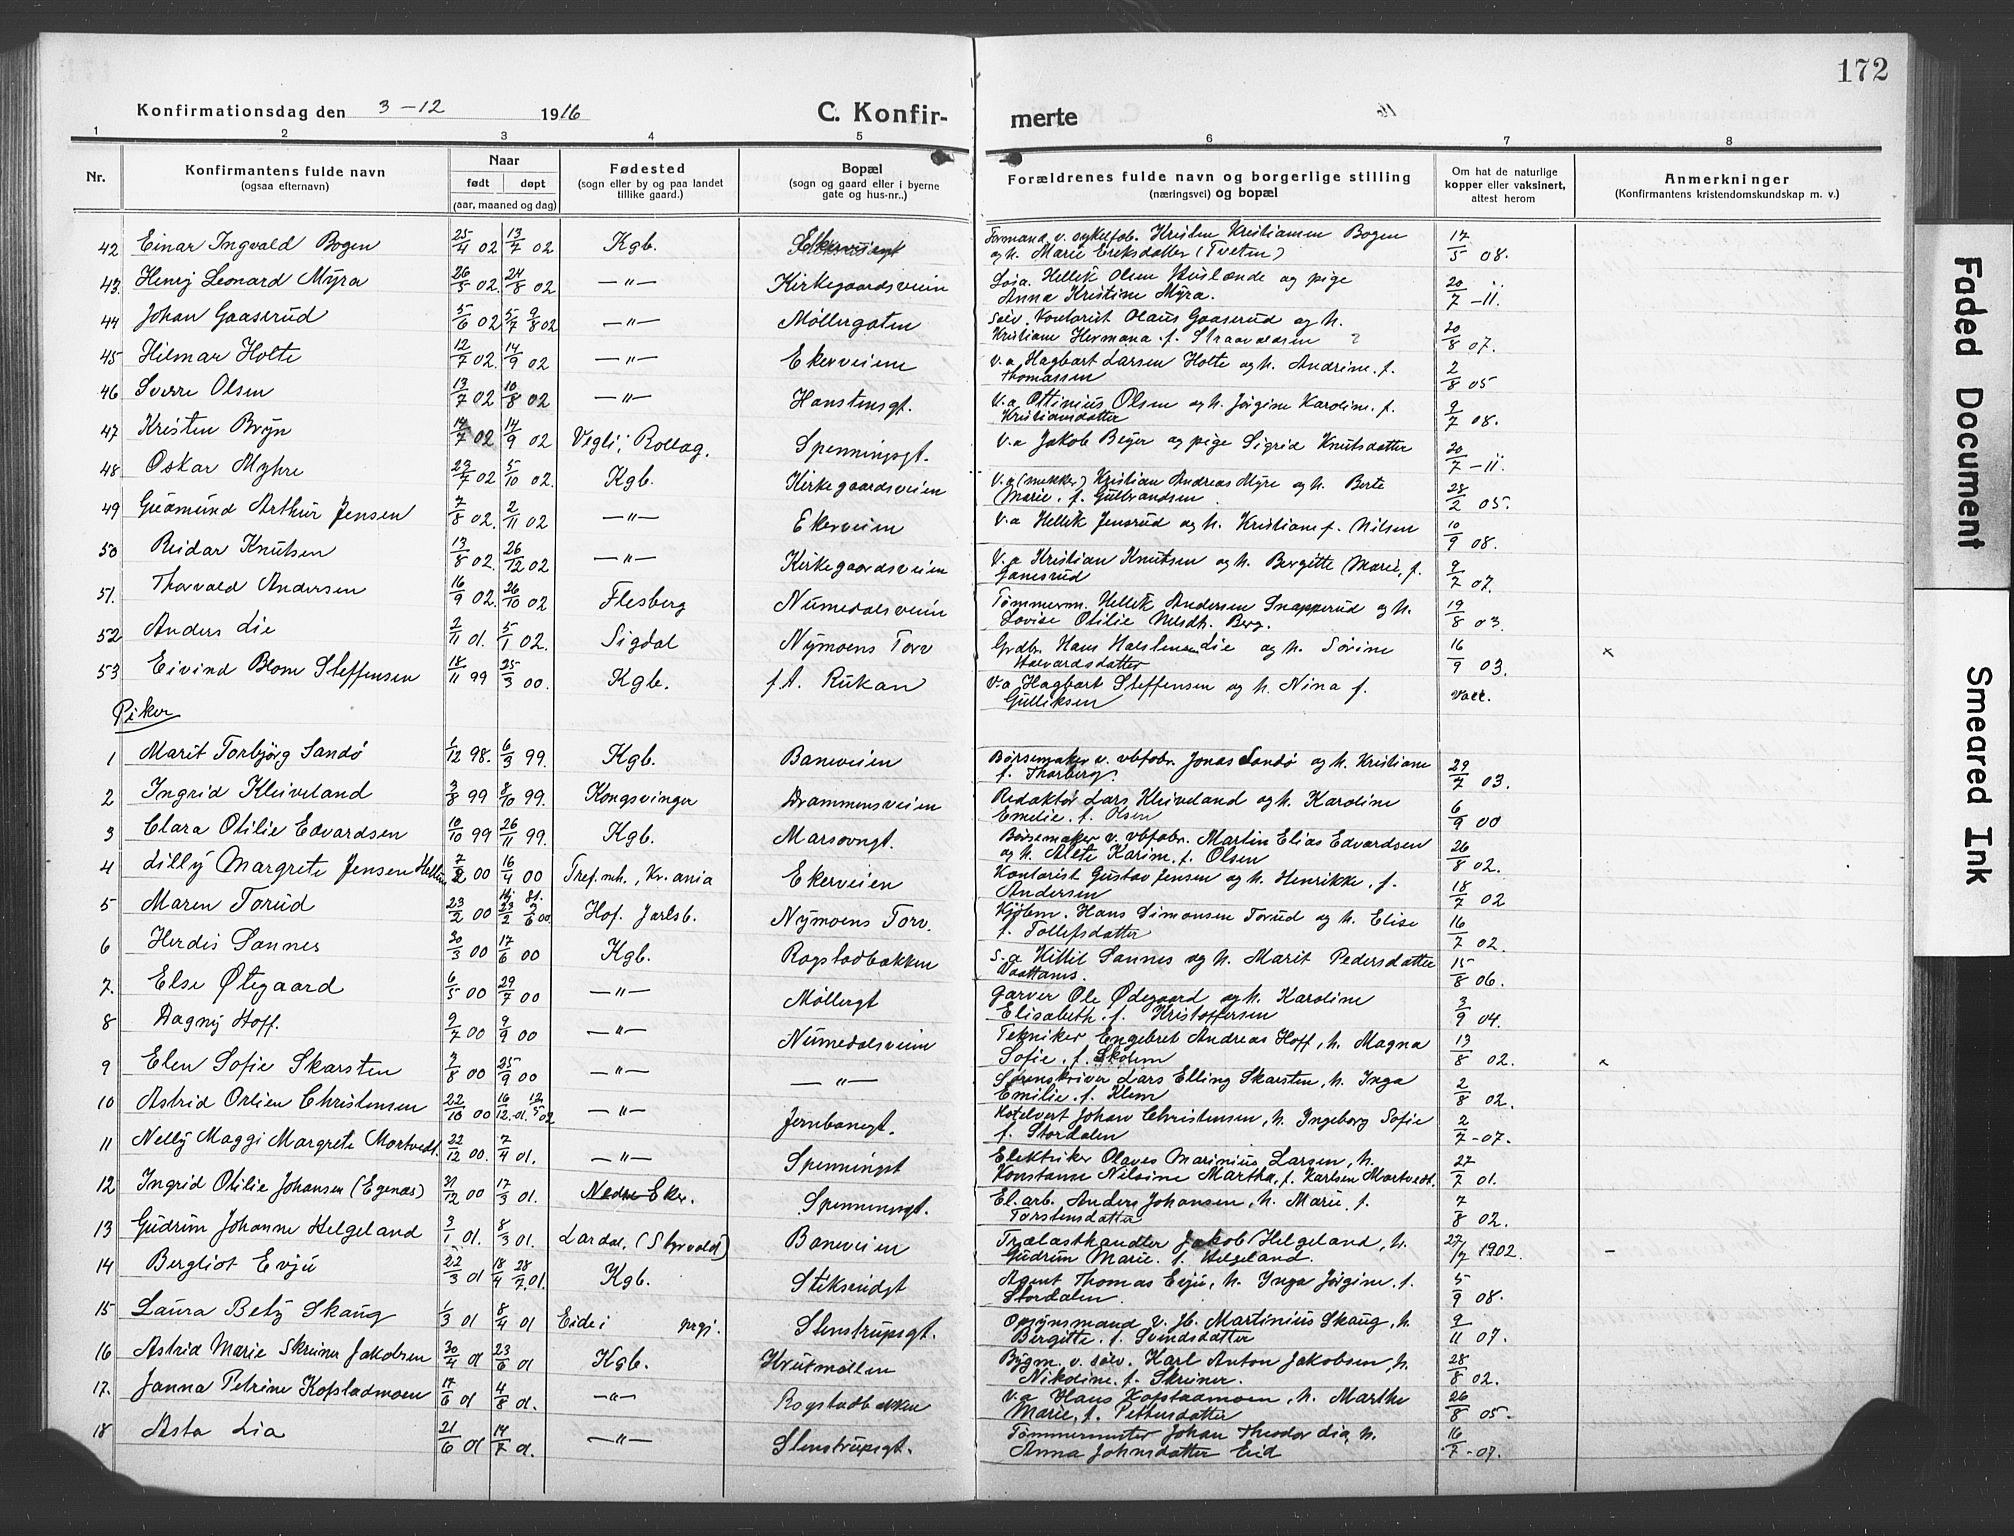 172
Konfirmationsdag den 3-12 1916 C. Konfir-
merte
1 2 3 4 5 6 7 8
Nr. Konfirmantens fulde navn (ogsaa efternavn)
Naar født døpt (aar, maaned og dag)
Fødested (sogn eller by og paa landet tillike gaard.)
Bopæl (sogn og gaard eller i byerne gate og hus-nr..)
Forældrenes fulde navn og borgerlige stilling (næringsvei) og bopæl
Om hat de naturlige kopper eller vaksinert, attest herom
Anmerkninger (Konfirmantens kristendomskundskap m. v.)
42 Einar Ingvald Bogen 25/4 02 13/7 02 Kgb. Ekerveien Formand v. cykelfab. Kristen Kristiansen Bogen 17/5 08.
og h. Marie Eriksdatter (Tveten)
43. Henij Leonard Myra 26/5 02. 24/8 02 —"— Kirkegaardsveien Løsa. Hellik Olsen og pige 20/7 -11.
Anna Kristine Myra.
44 Johan Gaaserud 5/6 02 5/7 9/8 02 —"— Møllergaten Sølv. Kontorist Olaus Gaaserud og h. 20/8 07.
Kristiane Hermana f.
45 Hilmar Holte 12/7 02. 14/9 02 —"— Ekerveien v.a Hagbart Larsen Holte og h. Andrine. f. 2/8 05
Thomassen
46 Sverre Olsen 13/7 02 10/8 02 —"— Hanstensgt. v.a Ottinius Olsen og h. Jørgine Karoline. f. 9/7 08.
Kristiansdatter
47 Kristen Bryn 14/7 02 14/9 02 Vegli, Rollag. Spenningsgt. v.a Jakob Beijer og pige Sigrid Knutsdatter 20/7 -11
48 Oskar Myhre 23/7 02 5/10 02. Kgb. Kirkegaardsveien v.a (snekker) Kristian Andreas Myre og h. Berte 28/2 05.
Marie. f. Gulbrandsen
49 Gudmund Arthur Jensen 7/8 02. 2/11 02 —"— Ekerveien v.a Hellik Jensrud og h. Kristiane f. Nilsen 10/9 08.
50 Reidar Knutsen 13/8 02. 26/12 02 —"— Kirkegaardsveien v.a Kristian Knutsen og h. Bergitte Marie, f. 9/7 07.
Gamsrud
51. Thorvald Andersen 16/9 02. 26/10 02 Flesberg Numedalsveien Tømmerm. Hellik Andersen Snapperud og h. 19/8 03.
Lovise Otilie Nilsdtr. Berg.
52 Anders Lie 2/11 01. 5/1 02. Sigdal Nymoens Torv Grdbr. Hans Halstensen Lie og h. Sørine 16/9 03. x
Halvardsdatter
53 Eivind Blom Steffensen 18/11 99 25/3 00. Kgb. f.A. Rukan v.a Hagbart Steffensen og h. Nina f. vacc.
Gulliksen
Piker
1 Marit Torbjørg Sandø 1/12 98. 6/3 99. Kgb. Baneveien Børsemaker v. vbfabr. Jonas Sandø og h. Kristiane 29/7 03.
f. Thorberg.
2 Ingrid Kleiveland 3/8 99 8/10 99. Kongsvinger Drammensveien Redaktør Lars Kleiveland og h. Karoline 6/9 00
Emelie. f. Olsen
3 Clara Otilie Edvardsen 10/10 99 26/11 99. Kgb. Marsovngt. Børsemaker v. vbfabr. Martin Elias Edvardsen 26/8 02.
og h. Alete Karine. f. Olsen
4 Lilly Margrete Jensen 7/2 00 16/4 00 Tref.mh., Kr.ania Ekerveien Kontorist Gustav Jensen og h. Henrikke. f. 18/7 02
Andersen
5 Maren Torud 23/2 00 23/2 3/6 00 Hof. Jarlsb. Nymoens Torv. Kjøbm. Hans Simonsen Torud og h. Elise 16/7 02.
f. Tollefsdatter
6 Herdis Sannes 30/3 00 17/6 00 Kgb. Rogstadbakken s.a Kittil Sannes og h. Marit Pedersdatter 15/8 06.
7. Else Øtegaard 6/5 00 29/7 00 —"— Møllergt Garver Ole Ødegaard og h. Karoline 3/9 04.
Elisabeth. f. Kristoffersen
8 Dagny Hoff. 9/7 00 9/9 00 —"— Numedalsveien Tekniker Engebret Andreas Hoff, h. Magna 13/8 02.
Sofie. f. Skolem
9 Elen Sofie Skarsten 3/8 00 25/9 00 —"— —"— Sorenskriver Lars Elling Skarsten, h. Inga 2/8 02. x
Emilie. f. Klem
10 Astrid Orlien Christensen 22/10 00 16/12 01. 12/5 02 —"— Jernbanegt. Hotelvert Johan Christensen, h. Ingeborg Sofie 2/7 -07.
f. Stordalen
11 Nelly Maggi Margrete Mortvedt. 22/12 00. 7/4 01. —"— Spenningst Elektriker Olaves Marinius Larsen, h. 27/7 01.
Konstanse Nilsine Martha, f. Karlsen Mortvedt.
12 Ingrid Otilie Johansen (Egenæs) 21/12 00 17/3 01. Nedre Eker. Spenningsgt. El.arb. Anders Johansen, h. Marie. f. 7/8 02.
Torstensdatter
13 Gudrun Johanne Helgeland 3/1 01. 8/3 01. Lardal, (Styrvold) Baneveien Trælasthandler Jakob Helgeland, h. 27/7 1902. –
Gudrun Marie. f. Helgeland.
14 Bergliot Evju 22/3 01 18/4 28/7 01. Kgb. Stiksrudgt Agent Thomas Evju, h. Inga Jørgine. f. 5/9 08.
Stordalen
15 Laura Betzy Skaug 1/3 01 8/4 01 Eide i prgj. Stenstrupsgt. Opsynsmand v. Jb. Martinius Skaug, h. 9/11 07.
Bergitte. f. Svendsdatter
16 Astrid Marie Skreiner Jakobsen 30/4 01 23/6 01 Kgb. Krutmøllen Bygm. v. sølv. Karl Anton Jakobsen, h. 28/8 02.
Nikoline. f. Skreiner.
17. Janna Petrine Kopstadmoen 17/6 01 4/8 01. —"— Rogstadbakken v.a Hans Kopstadmoen, h. Marthe 26/8 05-
Marie, f. Pettersdatter
18 Asta Lia 21/6 01 14/7 01. —"— Stenstrupsgt. Tømmermester Johan Theodor Lia, h. 16/7 -07.
Anna Johnsdatter Eid
Faded Document
Smeared Ink